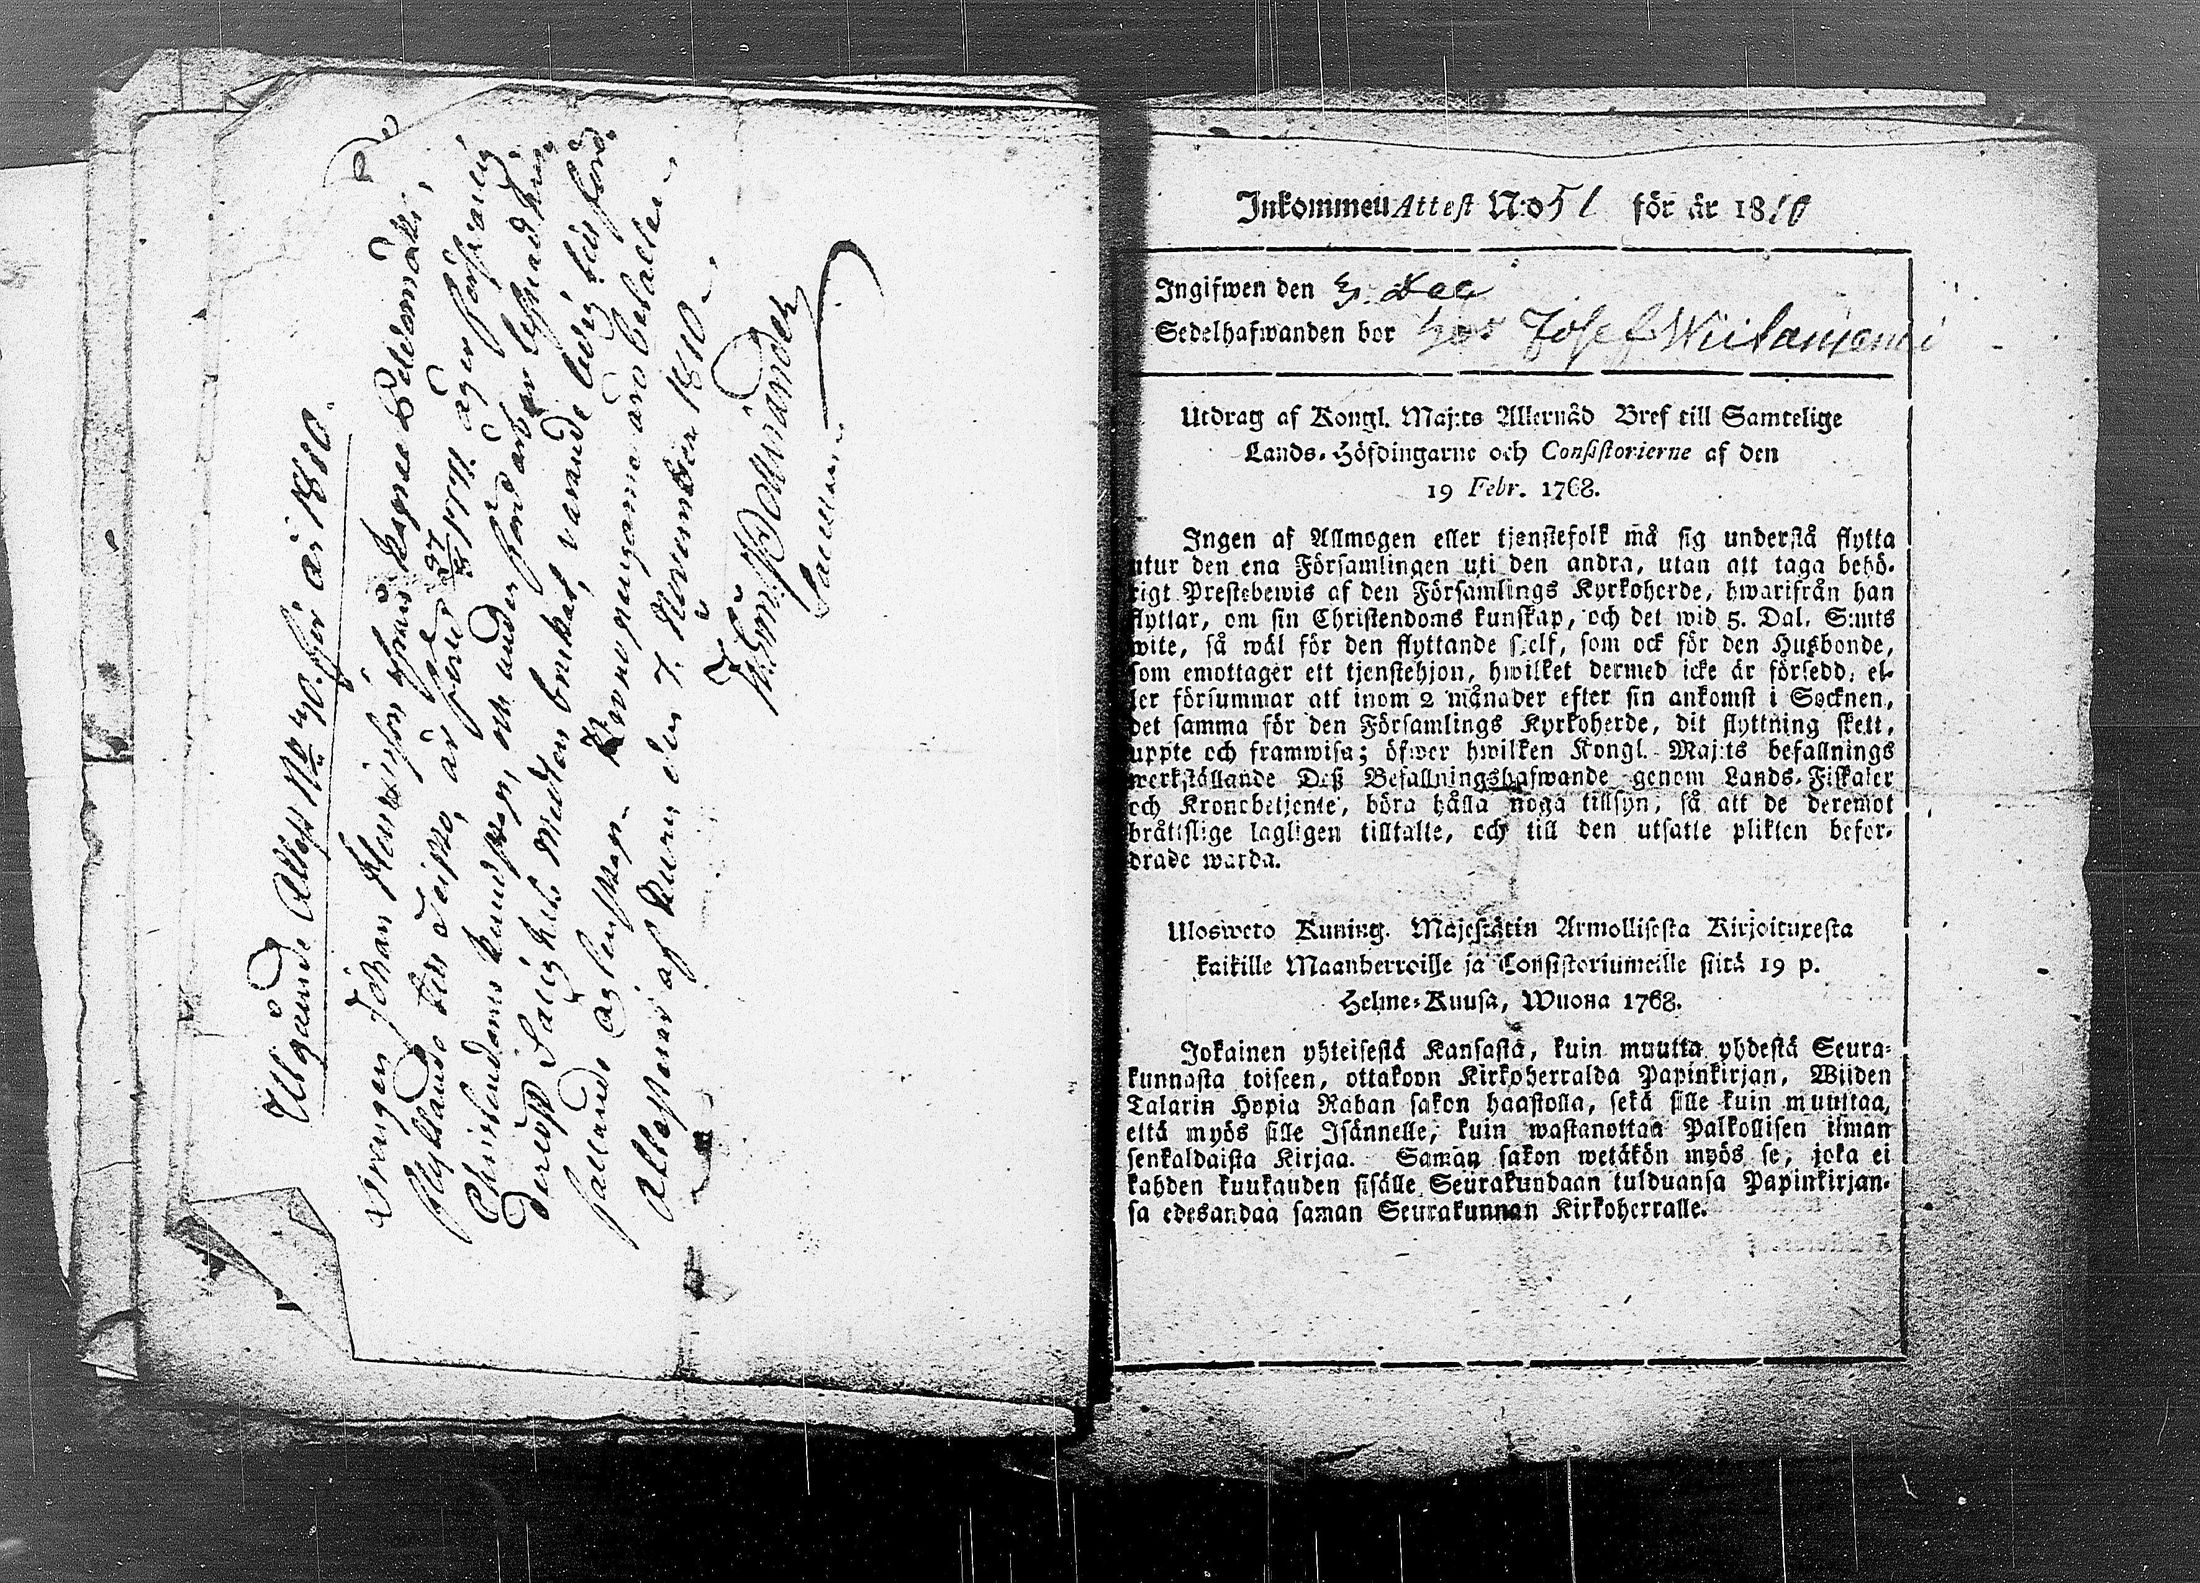 Utgående Attest No 70. för år 1810.
Drängen Johan Henriksson ifrån
flyttande till Teisko, är född 27 1777. äger försvarlig
Christendoms kunskap, och under
derest Salighets Medlen brukat, varande ledig till
fallande Ägtenskap. Kronoutgifterne äro betalte.
Attesterar af Kuru den 7. November 1810.
Inkommen Attest N:o 51 för år 1810
Ingifwen den 3. Dec
Sedelhafwanden bor hos Josef Wiitaniemi
Utdrag af Kongl. Maj:ts Allernåd Bref till Samtelige
Lands-Höfdingarne och Consistorierne af den
19 Febr. 1768.
Ingen af Allmogen eller tjenstefolk må sig understå flytta
utur den ena Församlingen uti den andra, utan att taga behö-
rigt Prestebewis af den Församlings Kyrkoherde, hwarifrån han
flyttar, om sin Christendoms kunskap, och det wid 5. Dal. S:mts
wite, så wäl för den flyttande sjelf, som ock för den Husbonde,
som emottager ett tjenstehjon, hwilket dermed icke är försedd; el-
ler försummar att inom 2 månader efter sin ankomst i Socknen,
det samma för den Församlings Kyrkoherde, dit flyttning skett,
uppte och framwisa; öfwer hwilken Kongl. Maj:ts befallnings
werkställande Deß Befallningshafwande genom Lands-Fiskaler
och Kronobetjente, böra hålla noga tillsyn, så att de deremot
bråttslige lagligen tilltalte, och till den utsatte plikten befor-
drade warda.
Ulosweto Kuning. Majestätin Armollisesta Kirjoituxesta
kaikille Maanherroille ja Consistoriumeille siitä 19 p.
Helme-Kuusa, Wuona 1768.
Jokainen yhteisestä Kansasta, kuin muutta yhdestä Seura-
kunnasta toiseen, ottakoon Kirkoherralda Papinkirjan, Wiiden
Talarin Hopia Rahan sakon haastolla, sekä sille kuin muuttaa,
että myös sille Isännelle, kuin wastanottaa Palkollisen ilman
senkaldaista Kirjaa. Saman sakon wetäkön myös se, joka ei
kahden kuukauden sisälle Seurakundaan tulduansa Papinkirjan-
sa edesandaa saman Seurakunnan Kirkoherralle.